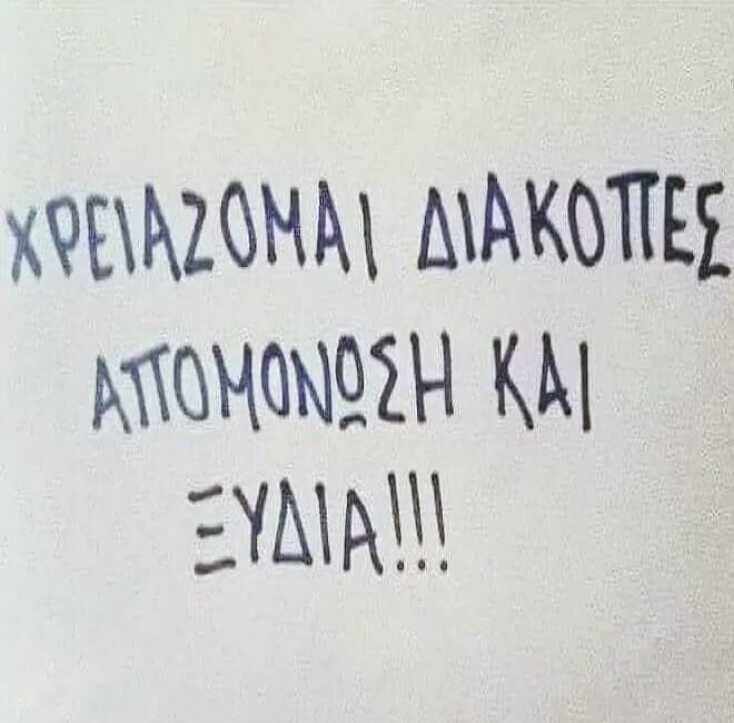 ΧΡΕΙΑΖΟΜΑΙ ΔΙΑΚΟΠΕΣ
ΑΠΟΜΟΝΩΣΗ ΚΑΙ
ΞΥΔΙΑ!!!